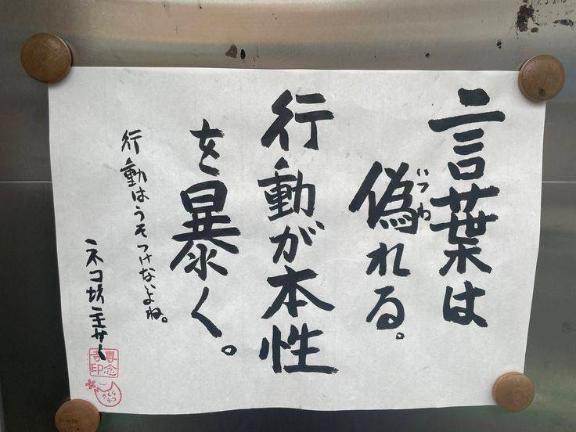 言葉は
偽れる。
いつわ
行動が本性
を暴く。
行動はうそつけないよね。
ネコ坊主
専念寺印